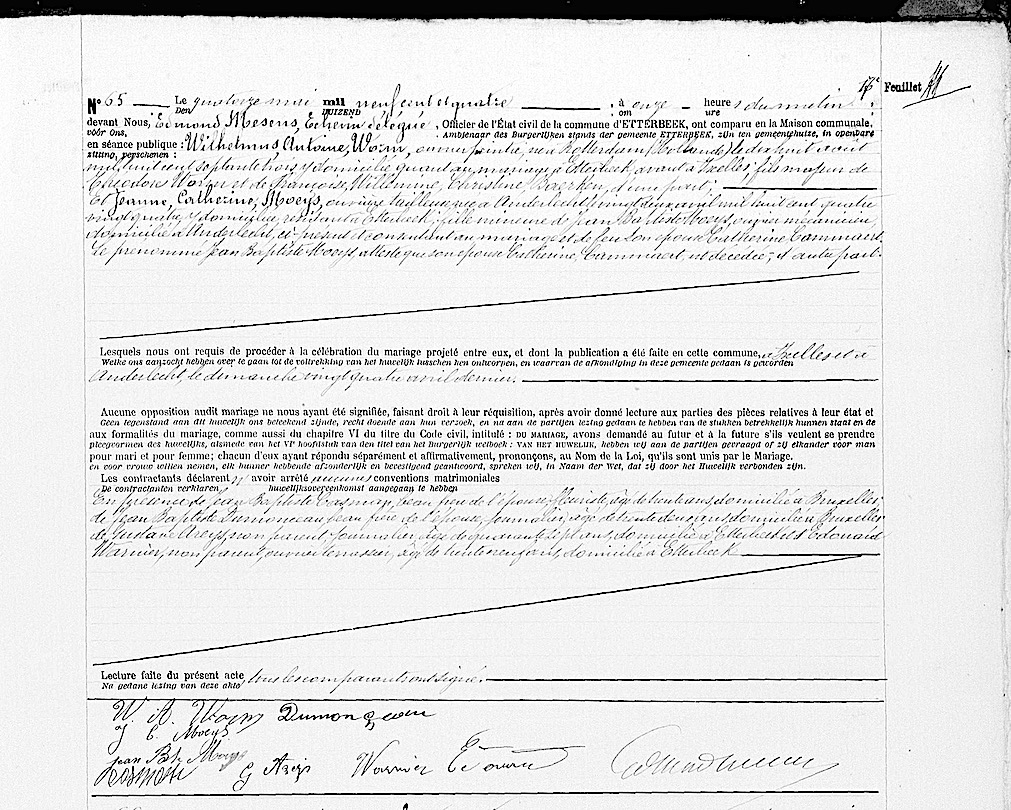 17e Feuillet
N° 65 Le quatorze mai mil neuf cent et quatre à onze heures du matin ;
Den DUIZEND om ure
devant Nous, Edmond Mesens, Echevin délégué, Officier de l'État civil de la commune d'ETTERBEEK, ont comparu en la Maison communale,
vóór Ons, Ambtenaar des Burgerlijken stands der gemeente ETTERBEEK, zijn ten gemeentehuize, in openbare
en séance publique : Wilhelmus Antoine, Worm, ouvrier peintre, né à Rotterdam (Hollande) le dix huit août
zitting, verschenen :
mil huit cent septante trois, y domicilié quant au mariage à Etterbeek, avant à Ixelles, fils majeur de
Théodore Worm et de Françoise, Willemine, Christine d'une part ;
Et Jeanne, Catherine, Moeys, ouvrière tailleuse, née à Anderlecht, le vingt deux avril mil huit cent quatre
vingt quatre, y domiciliée, résidant à Etterbeek, fille mineure de Jean Baptiste Moeys, ouvrier mécanicien,
domicilié à Anderlecht, ci-présent et consentant au mariage et de feu son épouse Catherine Cammaert.
Le prénommé Jean Baptiste Moeys, atteste que son épouse Catherine, Cammaert, est décédée ; d'autre part.
Lesquels nous ont requis de procéder à la célébration du mariage projeté entre eux, et dont la publication a été faite en cette commune, à Ixelles et à
Welke ons aanzocht hebben over te gaan tot de voltrekking van het huwelijk tusschen hen ontworpen, en waarvan de afkondiging in deze gemeente gedaan is geworden
Anderlecht, le dimanche vingt quatre avril dernier.
Aucune opposition audit mariage ne nous ayant été signifiée, faisant droit à leur réquisition, après avoir donné lecture aux parties des pièces relatives à leur état et
Geen tegenstand aan dit huwelijk ons beteekend zijnde, recht doende aan hun verzoek, en na aan de partijen lezing gedaan te hebben van de stukken betrekkelijk hunnen staat en de
aux formalités du mariage, comme aussi du chapitre VI du titre du Code civil, intitulé : DU MARIAGE, avons demandé au futur et à la future s'ils veulent se prendre
pleegvormen des huwelijks, alsmede van het VIe hoofdstuk van den titel van het Burgerlijk wetboek : VAN HET HUWELIJK, hebben wij aan de partijen gevraagd of zij elkander voor man
pour mari et pour femme ; chacun d'eux ayant répondu séparément et affirmativement, prononçons, au Nom de la Loi, qu'ils sont unis par le Mariage.
en voor vrouw willen nemen, elk hunner hebbende afzonderlijk en bevestigend geantwoord, spreken wij, in Naam der Wet, dat zij door het Huwelijk verbonden zijn.
Les contractants déclarent n'avoir arrêté aucunes conventions matrimoniales
De contractanten verklaren huwelijksovereenkomst aangegaan te hebben
En présence de Jean Baptiste beau frère de l'épouse, fleuriste, âgé de trente ans, domicilié à Bruxelles,
de Jean Baptiste Dumonceau, beau frère de l'épouse, journalier, âgé de trente deux ans, domicilié à Bruxelles
de Gustave non parent, journalier, âgé de quarante sept ans, domicilié à Etterbeek et d'Edouard
Warnier, non parent, ouvrier terrassier, âgé de trente neuf ans, domicilié à Etterbeek
Lecture faite du présent acte, tous les comparants ont signé.
Na gedane lezing van deze akte
W. A. Worm Dumonceau
J C. Moeys
jean Bte Moeys
G Warnier Edouard